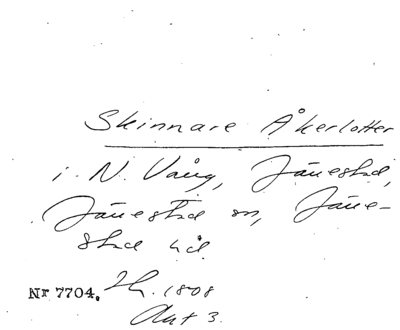 Skinnare Åkerlotter
i N. Vång, Jänestad,
Jänestad sn, Jäne-
stad hd
Nr 7704. Ehr. 1808
Akt 3.